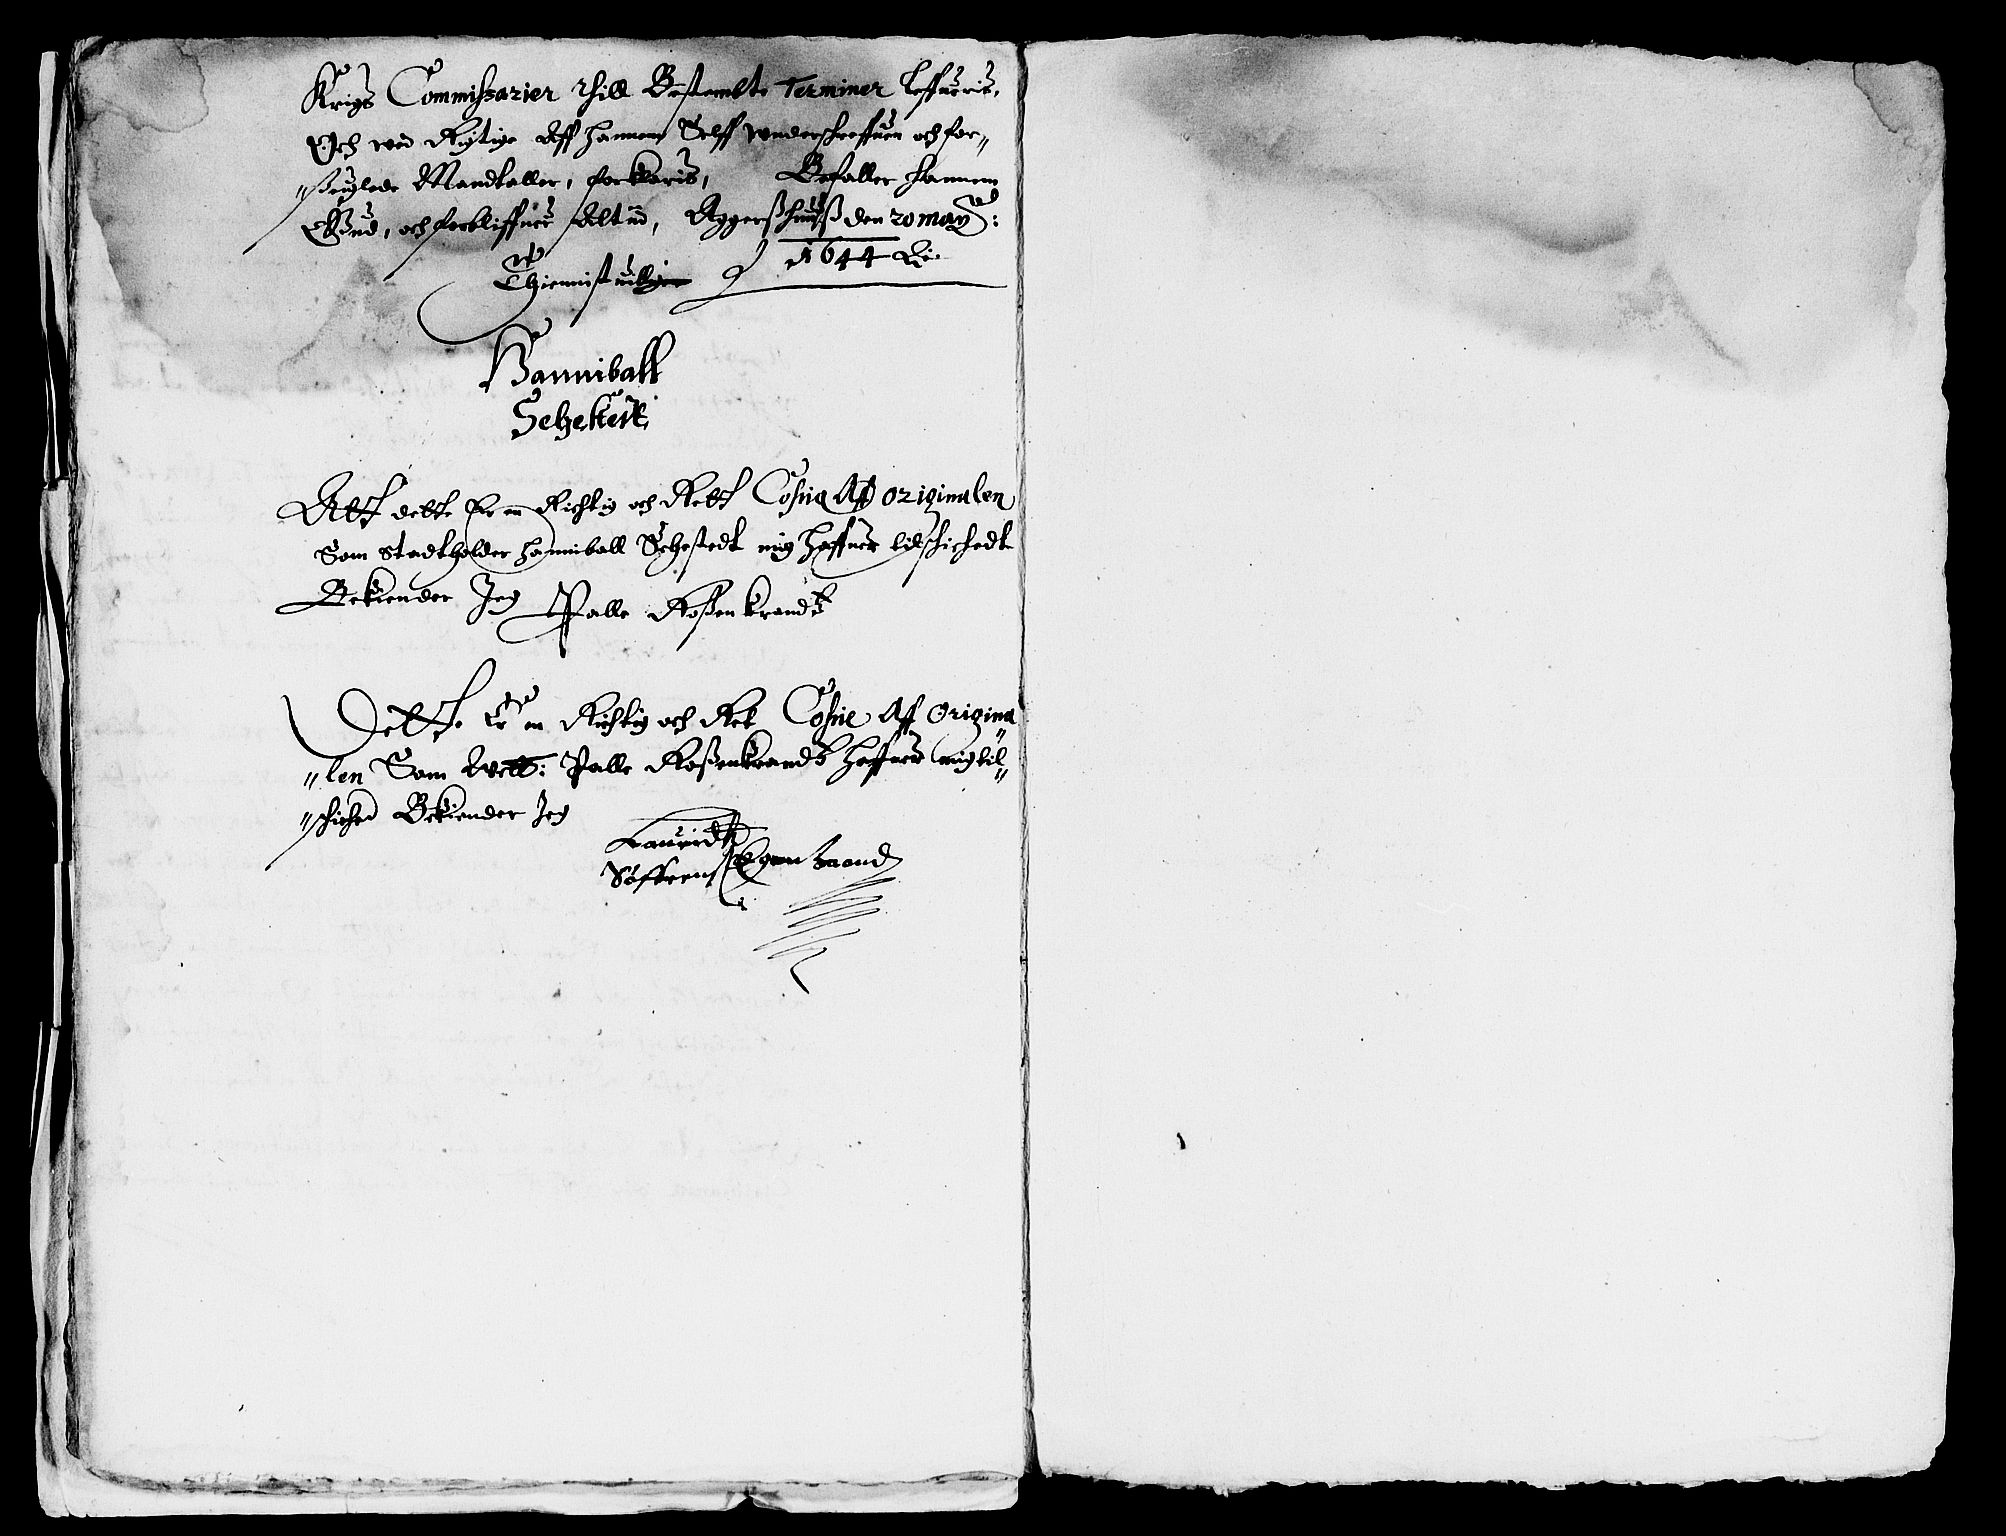 Krigs Commissarier thill Bestembte Terminer leffueris,
Och wed Rigtige Aff hannem Selff wnderschreffuen och for„
„Seiglede Mandtaller, forklaris, Befaller hannem
Gud, och forbliffuer Altid, Aggerßhuuß den 20 may
1644
Thienistuillige
Hanniball
Sehestedt
Att dette Er en Richtig och Rett Copiie Aff originalen
Som Stadtholder Hanniball Sehestedt mig haffuer tilschichedt
Bekiender Jeg Palle Roßenkrandtz
Dette Er en Richtig och Ret Copiie Aff Origina„
„len Som Welb: Palle Roßenkrandtz haffuer mig til„
„schiched Bekiender Jeg
Lauridtz
Søffrensen Egen haand